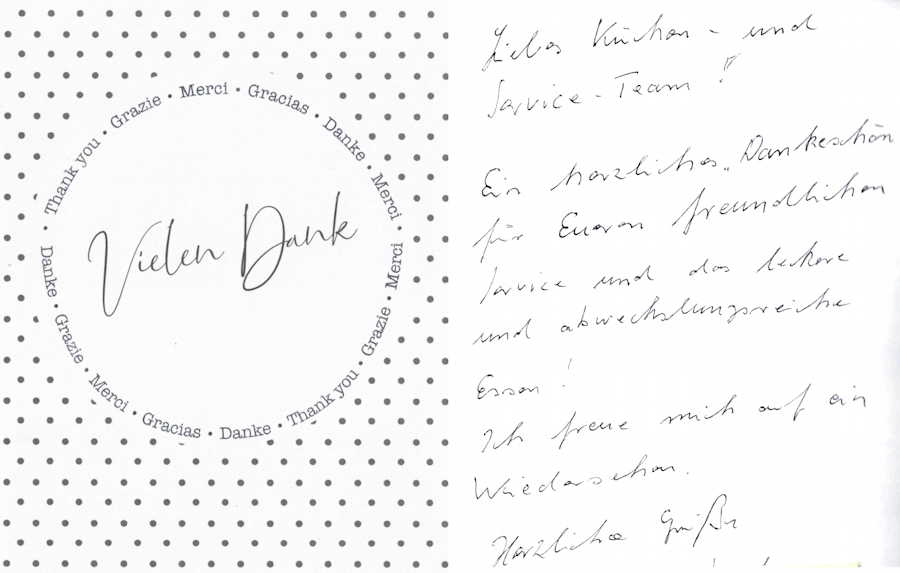 Thank you • Grazie • Merci • Gracias • Danke • Merci •
Danke • Grazie • Merci • Gracias • Danke • Thank you • Grazie • Merci
Vielen Dank
Liebes Küchen- und
Service-Team!
Ein herzliches „Dankeschön
für Eueren freundlichen
Service und das leckere
und abwechslungsreiche
Essen!
Ich freue mich auf ein
Wiedersehen.
Herzliche Grüße